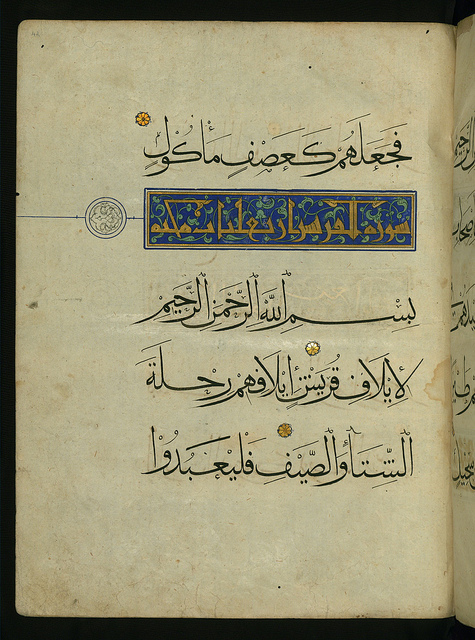 فَجَعَلَهُمْ كَعَصْفٍ مَأْكُولٍ
سورة القريش اربع ايات مكية
بِسْمِ اللَّهِ الرَّحْمَنِ الرَّحِيمِ
لِإِيلَافِ قُرَيْشٍ إِيلَافِهِمْ رِحْلَةَ
الشِّتَاءِ وَالصَّيْفِ فَلْيَعْبُدُوا